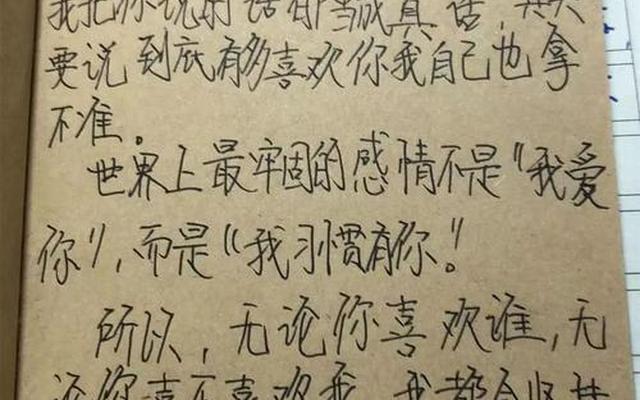 我把你说的话都当成真话，其实
要说到底有多喜欢你我自己也拿
不准。
世界上最牢固的感情不是"我爱
你"，而是"我习惯有你。"
所以，无论你喜欢谁，无
论你喜不喜欢我，我都会坚持